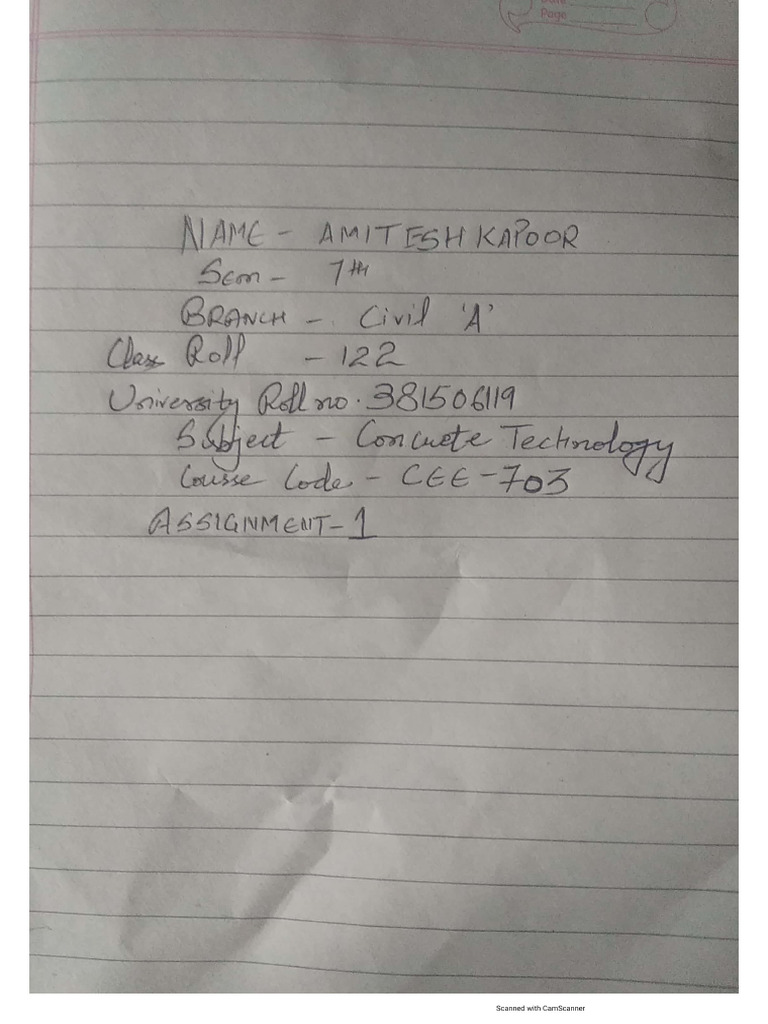 Page
NAME - AMITESH KAPOOR
Sem - 7th
BRANCH - Civil 'A'
Class Roll - 122
University Roll no. 381506119
Subject - Concrete Technology
Course Code - CEE-703
ASSIGNMENT-1
Scanned with CamScanner